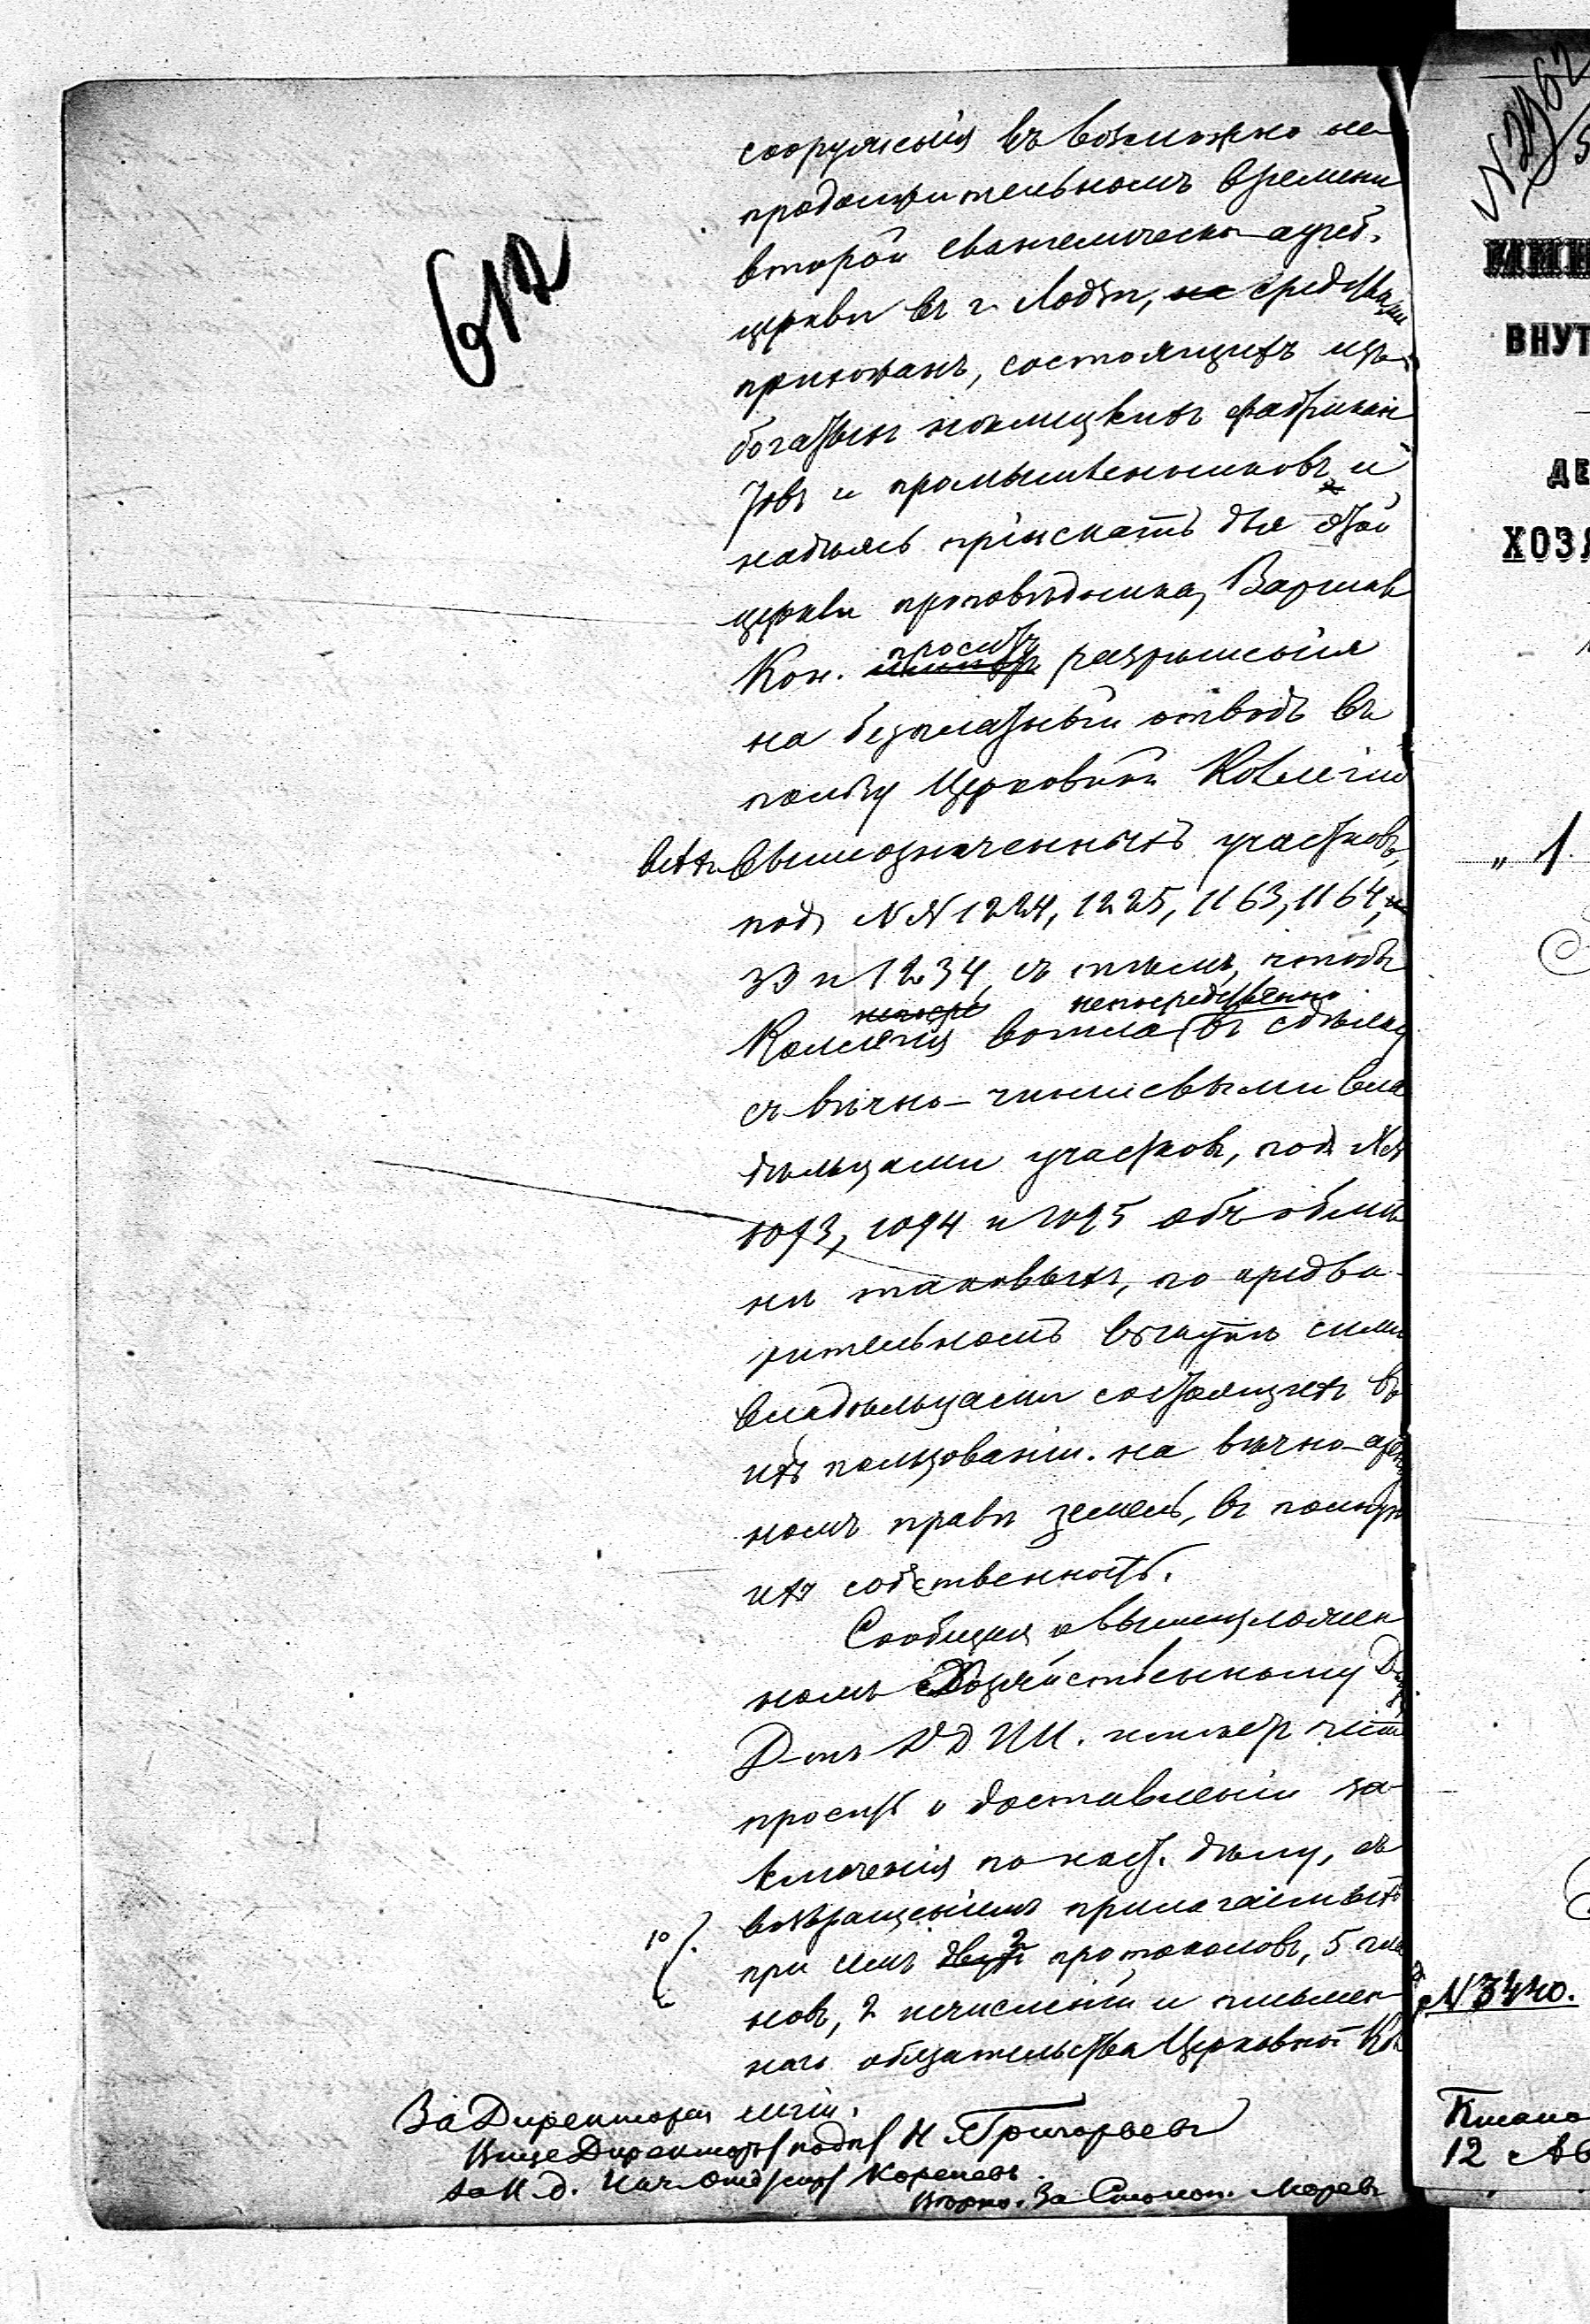 612
сооруженія въ возможно не-
продолжительномъ времени
второй евангелическо-аугсб.
церкви въ г. Лодзи, на средствами
прихожанъ, состоящихъ изъ
богатыхъ нѣмецкихъ фабрикан
товъ и промышленниковъ и
надѣясь пріискать для этой
церкви проповѣдника, Варшав
Кон. проситъ разрѣшенія
на безплатный отводъ въ
пользу Церковной Коллегіи
всѣхъ вышеозначенныхъ участковъ,
подъ №№ 1224, 1225, 1163, 1164, и
39 и 1234, съ тѣмъ, чтобы
непосредственно
Коллегія вошла въ сдѣлку
съ вѣчно-чиншевыми вла
дѣльцами участковъ, подъ №№
1093, 1094 и 1095 объ обмѣ
нѣ таковыхъ, по предва-
рительномъ выкупѣ сими
владѣльцами состоящихъ въ
ихъ пользованіи на вѣчно-
номъ правѣ земель, въ полную
ихъ собственность.
Сообщая о вышеизложен
номъ Хозяйственному
Д-тъ ДДИИ. имѣетъ честь
просить о доставленіи за-
ключенія по наст. дѣлу, съ
возвращеніемъ прилагаемыхъ
при семъ двухъ 2 протоколовъ, 5 пла
новъ, 2 исчисленій и письмен
наго обязательства Церковной Кол
легіи.
За Директора
Вице Директоръ подп. Н. Григорьевъ
За И. д. Нач. Отд.
Вѣрно. За Столон.
№
ВНУТ
ДЕ
ХОЗЯ
„ 1
№ 3440.
12 Ав